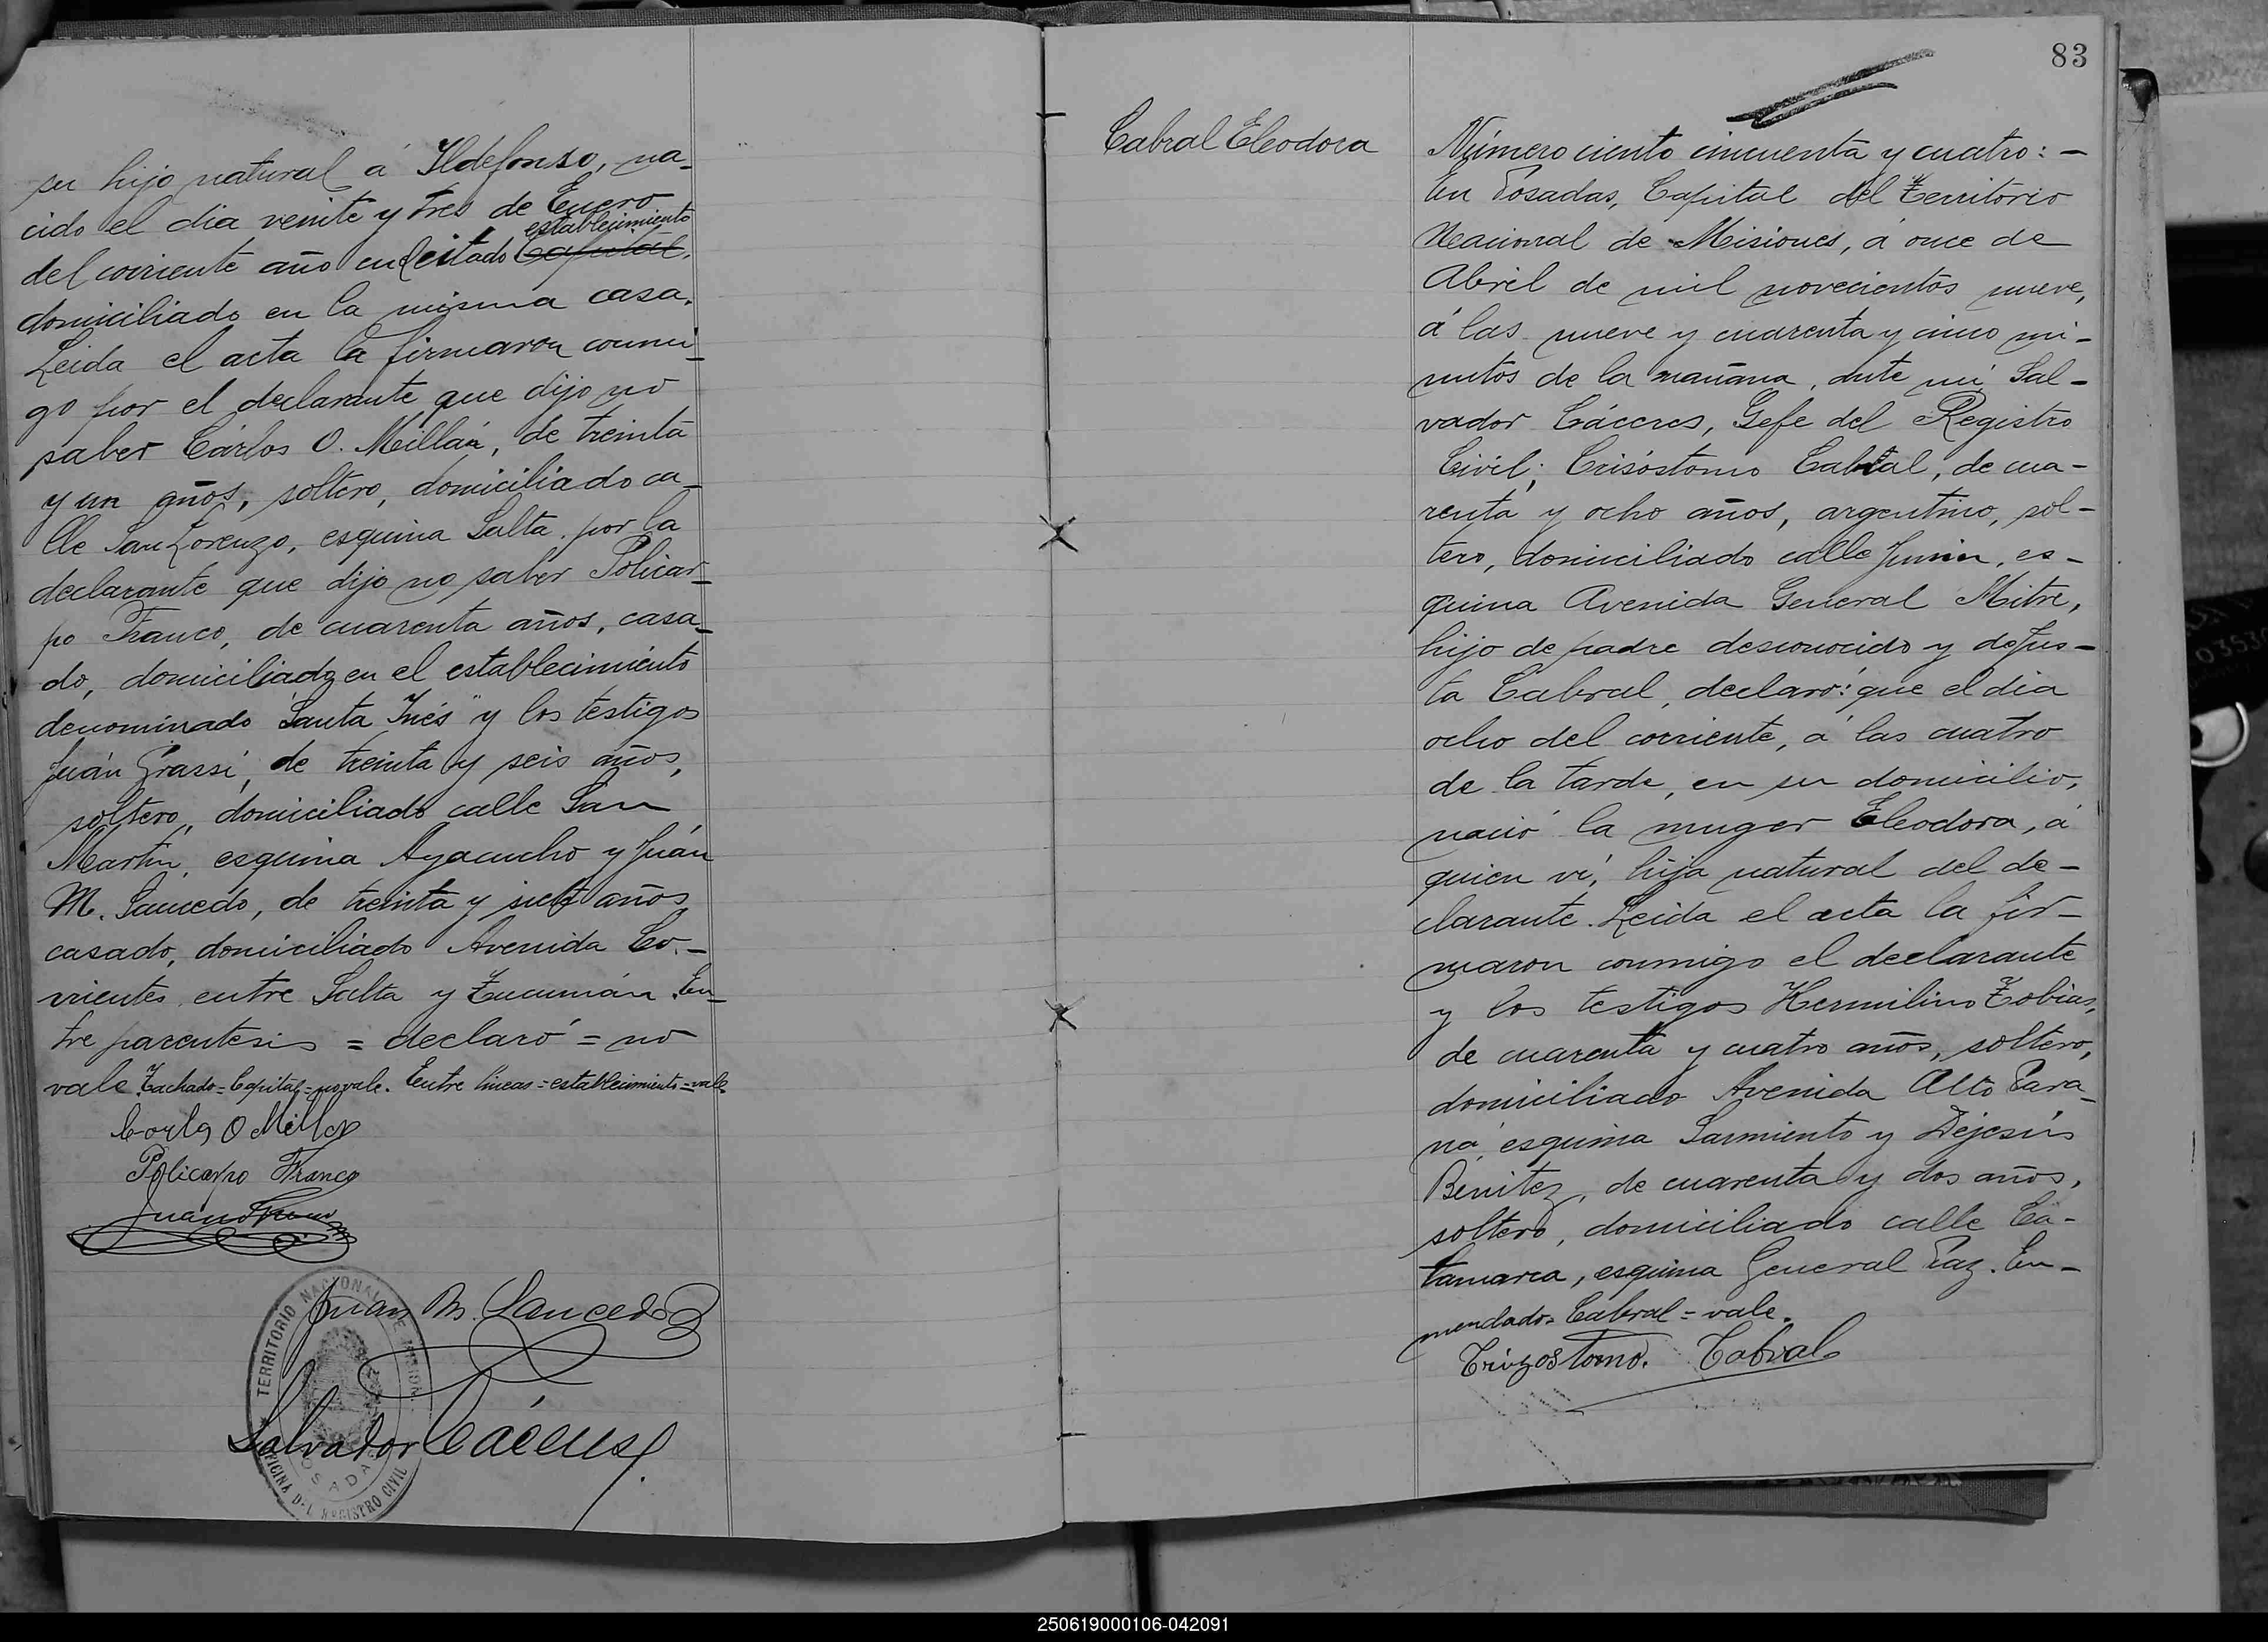 su hijo natural á Ildefonso, na-
cido el dia veinte y tres de Enero
establecimiento
del corriente año en el citado Capital,
domiciliado en la misma casa.
Leida el acta la firmaron conmi-
go por el declarante que dijo no
saber Cárlos O. Millán, de treinta
y un años, soltero, domiciliado ca-
lle San Lorenzo, esquina Salta, por la
declarante que dijo no saber Policar-
po Franco, de cuarenta años, casa-
do, domiciliado en el establecimiento
denominado "Santa Inés" y los testigos
Juán Grassi, de treinta y seis años,
soltero, domiciliado calle San
Martin, esquina Ayacucho y Juán
M. Saucedo, de treinta y siete años,
casado, domiciliado Avenida Co-
rrientes entre Salta y Tucumán. En-
tre parentesis = declaró = no
vale. Tachado = Capital = no vale. Entre lineas = establecimiento = vale.
Policarpo Franco
Juan M. Saucedo
Salvador Cáceres
TERRITORIO NACIONAL DE MISIONES
OFICINA DEL REGISTRO CIVIL
POSADAS
83
Cabral Eleodora
Número ciento cincuenta y cuatro: -
En Posadas, Capital del Territorio
Nacional de Misiones, á once de
Abril de mil novecientos nueve,
á las nueve y cuarenta y cinco mi-
nutos de la mañana, ante mi, Sal-
vador Cáceres, Gefe del Registro
Civil; Crisóstomo Cabral, de cua-
renta y ocho años, argentino, sol-
tero, domiciliado calle Junin, es-
quina Avenida General Mitre,
hijo de padre desconocido y de Jus-
ta Cabral, declaró: que el dia
ocho del corriente, á las cuatro
de la tarde, en su domicilio,
nació la muger Eleodora, á
quien ví, hija natural del de-
clarante. Leida el acta la fir-
maron conmigo el declarante
y los testigos Hermilino Tobias,
de cuarenta y cuatro años, soltero,
domiciliado Avenida Alto Para-
ná esquina Sarmiento y Dejesús
Benitez, de cuarenta y dos años,
soltero, domiciliado calle Ca-
tamarca, esquina General Paz. En-
mendado = Cabral = vale.
Crizostomo. Cabral
250619000106-042091